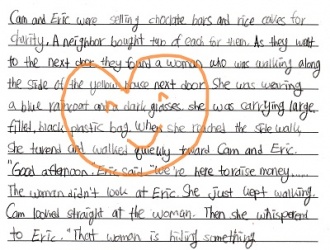 Cam and Eric were selling choclate bars and rice cakes for
charity. A neighbor bought two of each for them. As they went
to the next door they found a woman who was walking along
the side of the yellow house next door She was wearing
a blue raincoat and dark glasses. she was carrying large
filled, black plastic bag. When she reached the side walk,
She turend and walked quickly toward Cam and Eric.
"Good afternoon," Eric said, "we're here to raise money.....
The woman didn't look at Eric. She just kept walking.
Cam looked straight at the woman. Then she whisperend
to Eric. "That woman is hiding something